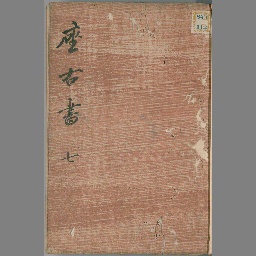 座右書 七